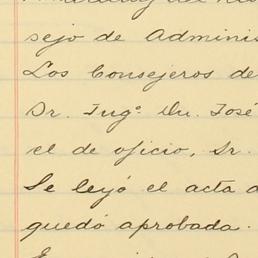 sejo de Adminis
Los Consejeros de
Dr. Ingº Dn. José
el de oficio, Sr.
Se leyó el acta d
quedó aprobada.